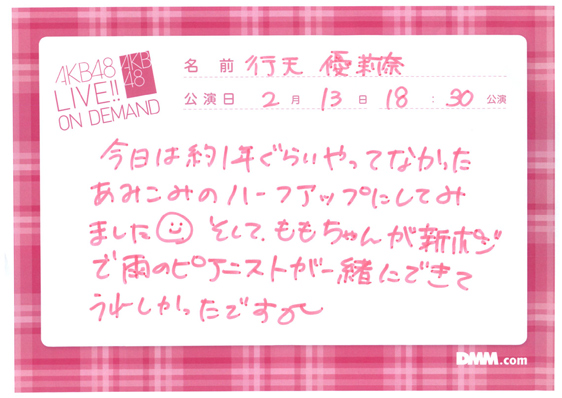 AKB48
LIVE!!
ON DEMAND
AKB
48
名前 行天 優莉奈
公演日 2月13日 18:30公演
今日は約1年ぐらいやってなかった
あみこみのハーフアップにしてみ
ました そして、ももちゃんが新ポジ
で雨のピアニストが一緒にできて
うれしかったです
DMM.com